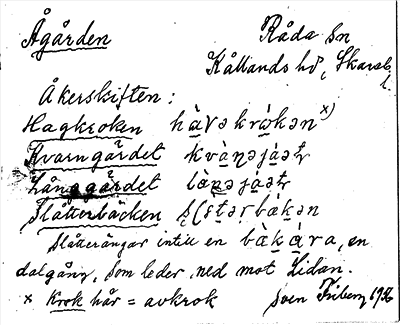 Ågården Råda sn
Kållands hd, Skarab. l.
Åkerskiften:
Hagkroken hàvəkrò̀kən x)
Kvarngärdet kvàṇəjàət
Långgärdet làŋəjàət
Slåtterbäcken
Slåtterängar intill en bàkàra, en
dalgång, som leder ned mot Lidan.
x Krok här = avkrok Sven Friberg 1956